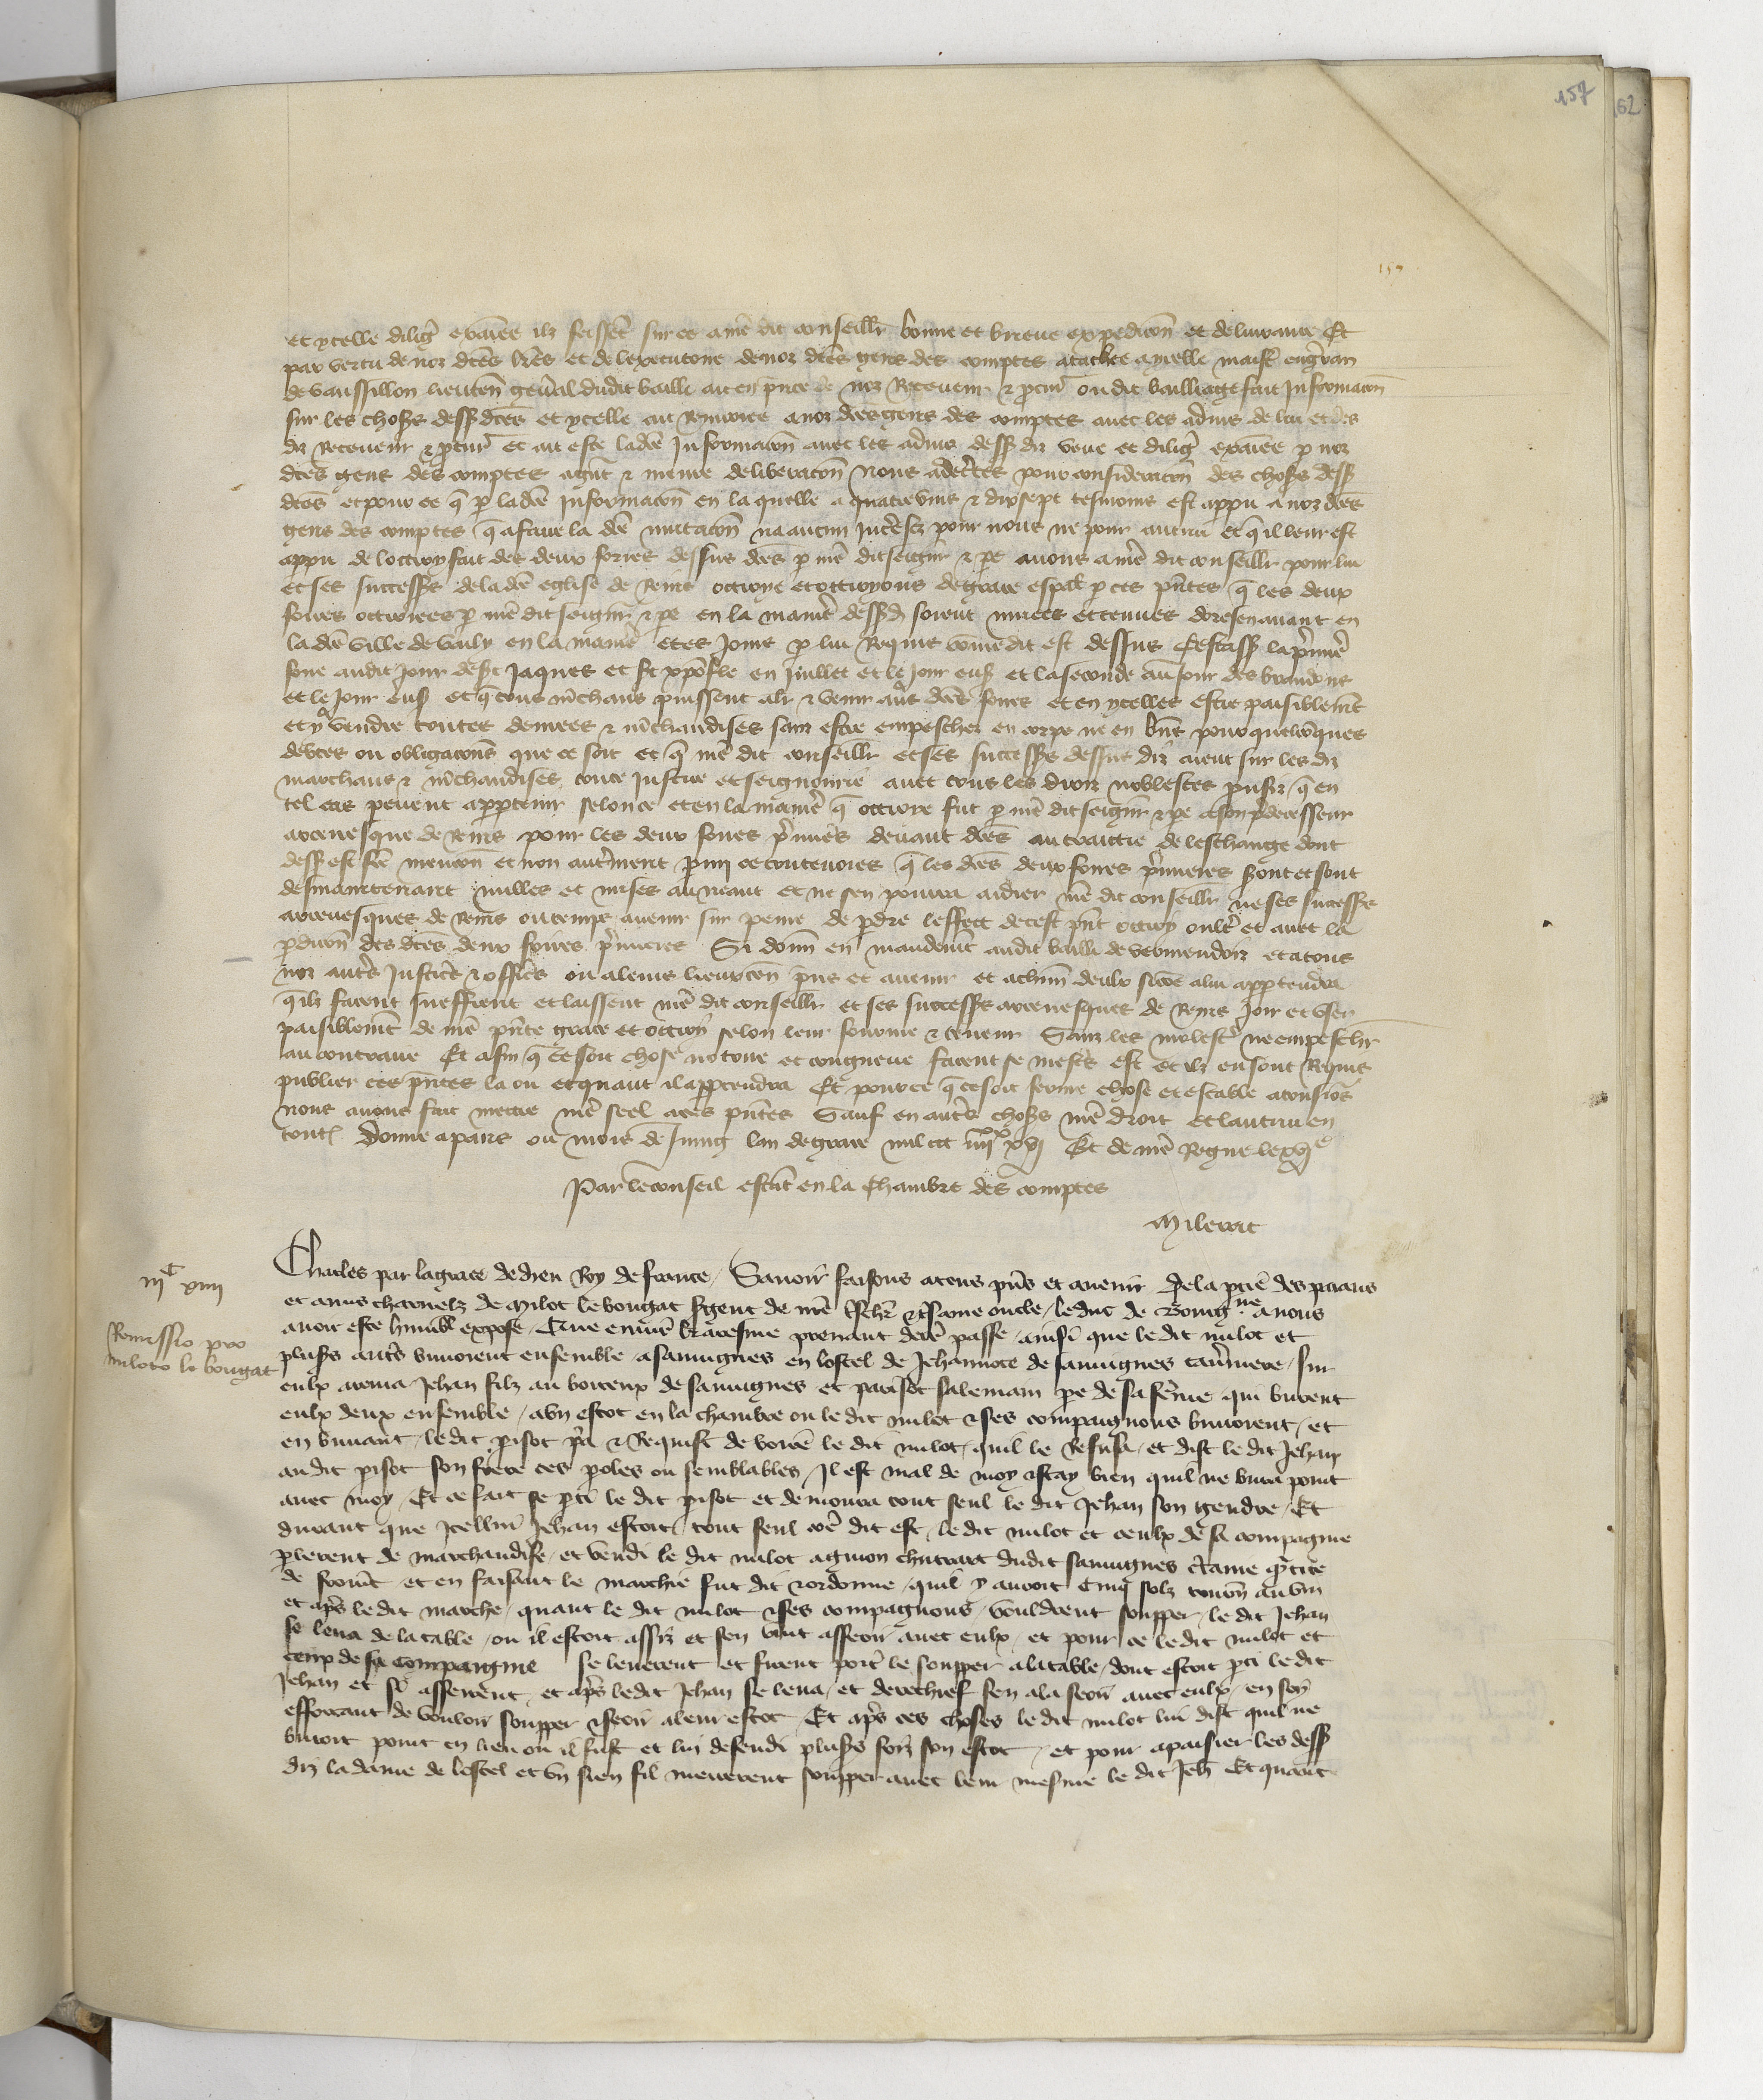 157
62
157
et ycelle dilig̃ exaiee ilz feissẽt sur ce a nr̃e dit conseillr̃ bonne et brieue expedicõn et deliurance Et
par vertu de noz dc̃es lr̃es et de lexecutoire de noz dc̃es gens des comptes atachee a ycelle maist̃ eng̃ran
de vaussillon lieuten̄ gen̄al dudit bailli ait en p̃nce de noz Receueur ⁊ p̃cur̃ ou dit bailliage fait Informacõn
sur les choses dess dc̃es et ycelle ait Renuoiee a noz dc̃es gens des comptes auec les aduis de lui et des
diz Receueur ⁊ p̃cur̃ et ait este ladc̃e Informacõn auec les aduis dess diz veue et dilig̃ exaiee p noz
dc̃es gens des comptes a gñt ⁊ meure deliberacõn Nous adec̃tes pour consideracõn des choses dess
dc̃es et pour ce q̃ p ladc̃e Informacõn en la quelle a quatre vins ⁊ dixsept tesmoins est appu a noz dc̃es
gens des comptes q̃ a faire la dc̃e mutacõn na aucun int̃est pour nous ne pour autrui et q̃ il leur est
appu de lottroy fait des deux foires dessus dc̃es p nr̃e dit seigñr ⁊ pe auons a nr̃e dit conseillr̃ pour lui
et ses success̃ de ladc̃e eglise de Reins ottroye et ottroyons de grace espãl p ces p̃ntes q̃ les deux
foires ottroiees p nr̃e dit seigñr ⁊ pe en la manier̃ dess̃d soient muees et tenues doresenauant en
ladc̃e ville de vailly en la manier̃ et es Jours p lui Requis cõme dit est dessus Cestass̃ la p̃mier̃
foire audit Jour de st Jaques et st xp̃ofle en Juillet et le Jour ens̃ et la seconde au Jour des brandons
et le Jour ens̃ et q̃ tous mc̃hans puissent aler ⁊ venir aus dc̃es foires et en ycelles estre paisiblemẽt
et y vendre toutes denrees ⁊ mc̃handises sanz estre empeschez en corps ne en biens pour quelcõques
debtes ou obligacõns que ce soit et q̃ nr̃e dit conseillr̃ et ses success̃ dessus diz aient sur les diz
marchans ⁊ mc̃handises toute Justice et seignourie auec tous les droiz noblesces p̃ufiz q̃ en
tel cas peuent appartenir selon ce et en la manier̃ q̃ ottroye fut p nr̃e dit seigñr ⁊ pe a son p̃decesseur
arceuesque de Reins pour les deux foires p̃mier̃s deuant dc̃es au traittie de leschange dont
dess̃ est fc̃e mencion et non autr̃ment p̃mi ce toutesuoies q̃ les dc̃es deux foires p̃mieres sont et sont
desmaintenant nulles et mises au neant et ne sen pourra aidier nr̃e dit conseillr̃ ne ses success̃
arceuesques de Reins ou temps auenir sur peine de p̃dre leffect de cest p̃nt ottroy oultr̃ et auec la
p̃dicõn des dc̃es deux foires p̃mieres Si donn̄ en mandemẽt audit bailli de vermendois et a tous
noz autr̃s Justicr̃s ⁊ officr̃s ou a leurs lieuxten̄ p̃ns et auenir et a chũn deulx sicõe a lui appartendra
q̃ilz facent sueffrent et laissent nr̃e dit conseillr̃ et ses success̃ arceuesques de Reins Joir et vser
paisiblemẽt de nr̃e p̃nte grace et ottroy selon leur fourme ⁊ teneur Sanz les molest̃ ne empeschr̃
au contraire Et afin q̃ ce soit chose notoire et congneue facent se mest̃s est et ilz en sont Requis
publier ces p̃ntes la ou et quant il appartendra Et pour ce q̃ ce soit ferme chose et estable a tousio's
nous auons fait mettre nr̃e seel a ces p̃ntes Sauf en autr̃s choses nr̃e droit et lautrui en
toutes Donne a paris ou mois de Juing lan de grace mil ccc iiii xx xvj Et de nr̃e Regne le xvj e
Par le conseil estãt en la Chambre des comptes
Milerat
iij C xiiii
Charles par la grace de dieu Roy de france / Sauoir faisons a tous p̃ns et auenir De la p̃tie des parans
et amis charnelz de Milot le bougat sergent de nr̃e tr̃eschr̃ ⁊ tresame oncle / le duc de Bourg ne a nous
Remissio pro
miloto le bougat
auoir este humblẽ expose / Que enuirõ karesme prenant derr̃ passe / ainsi que le dit milot et
plus̃s autr̃s buuoient ensemble a sauuignes en lostel de Jehannote de sauuignes tau̾niere / sur
eulx ariua Jehan filz au boiteux de sauuignes et parisot salemain pe de sa fẽme qui burent
eulx deux ensemble / a vn escot en la chambre ou le dit milot ⁊ ses compaignons buuoient / et
en buuant / le dit p̃isot p̃a ⁊ Requist de boire le dit milot / quil le Refusa / et dist le dit Jehan
au dit p̃isot son frere ces p̃oles ou semblables / Il est mal de moy ⁊ scay bien quil ne bura point
auec moy / Et ce fait se p̃ti le dit p̃isot et demoura tout seul le dit Jehan son gendre / Et
durant que Icellui Jehan estoit / tout seul cõe dit est / le dit milot et ceulx de sa compagnie
p̃lerent de marchandise / et vendi le dit milot a guion chitrart dudit sauuignes c̃taine q̃tite
de fromẽt et en faisant le marchie fut dit ⁊ ordonne / quil y auroit Cinq solz tourñ au vin
et apr̃s le dit marche / quant le dit milot ⁊ ses compagnons / vouldrent soupper / le dit Jehan
se leua de la table / ou il estoit assiz et sen vint asseoir auec eulx / et pour ce le dit milot et
ceux de sa compaignie se leuerent et firent port̃ le soupper a la table / dont estoit p̃ti le dit
Jehan et se asserent / et apr̃s le dit Jehan se leua / et derechief sen ala seoir auec eulx / en soy
efforcant de vouloir soupper ⁊ seoir a leur escot / Et apr̃s ces choses le dit milot lui dist quil ne
buroit point en lieu ou il fust et lui defendi plus̃s foiz son escot / et pour apaisier les dess̃
diz la dame de lostel et vn sien fil menerent soupper auec leur mesme le dit Jeh̃ Et quant